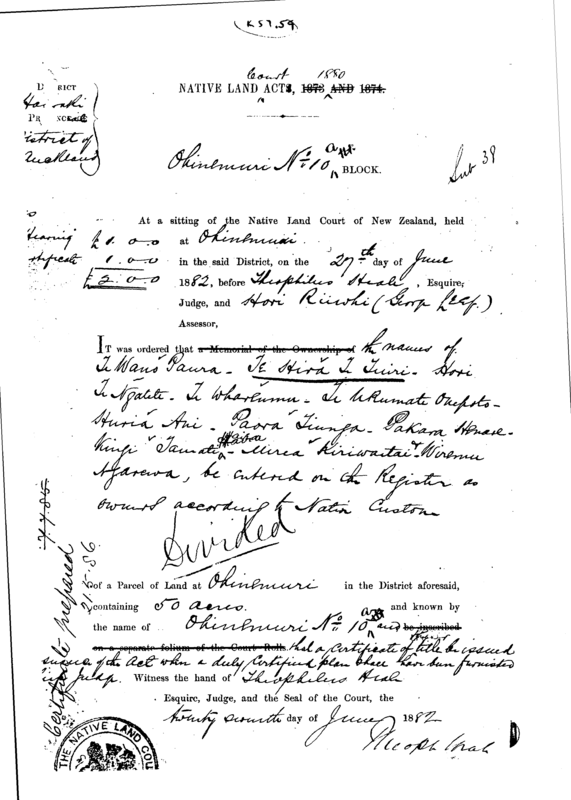 (K57.59)
Court 1880
NATIVE LAND ACTS, 1873 AND 1874.
D RICT
Hauraki
PR NCE
District of
Auckland
Ohinemuri No 10 a
BLOCK.
Sub 38
At a sitting of the Native Land Court of New Zealand, held
Hearing £1.0.0 at Ohinemuri
1.0.0 in the said District, on the 27th day of June
£2.0.0 1882, before Theophilus Heale, Esquire,
Judge, and Hori Riiwhi
Assessor,
IT was ordered that a Memorial of the Ownership of the names of
Te Wano Paura - Te Hira Te Tuiri - Hori
Te Ngatete - Te Wharenuu - Te Ukumate
Huria Ani - Paora Tiunga - Pakara
Kingi Tamati - Mirea Kiriwaitai - Wiremu
be entered on the Register as
owners according to Native Custom
Divided
of a Parcel of Land at Ohinemuri in the District aforesaid,
containing 50 acres. and known by
the name of Ohinemuri No 10 a and be inscribed
on a separate folium of the Court Rolls that a Certificate of title be issued
of the Act when a duly Certified plan shall have been furnished
Judge. Witness the hand of Theophilus Heale
Esquire, Judge, and the Seal of the Court, the
twenty seventh day of June 1882
Theoph Heale
Certificate prepared
21.5.86
7.7.85
THE NATIVE LAND COU